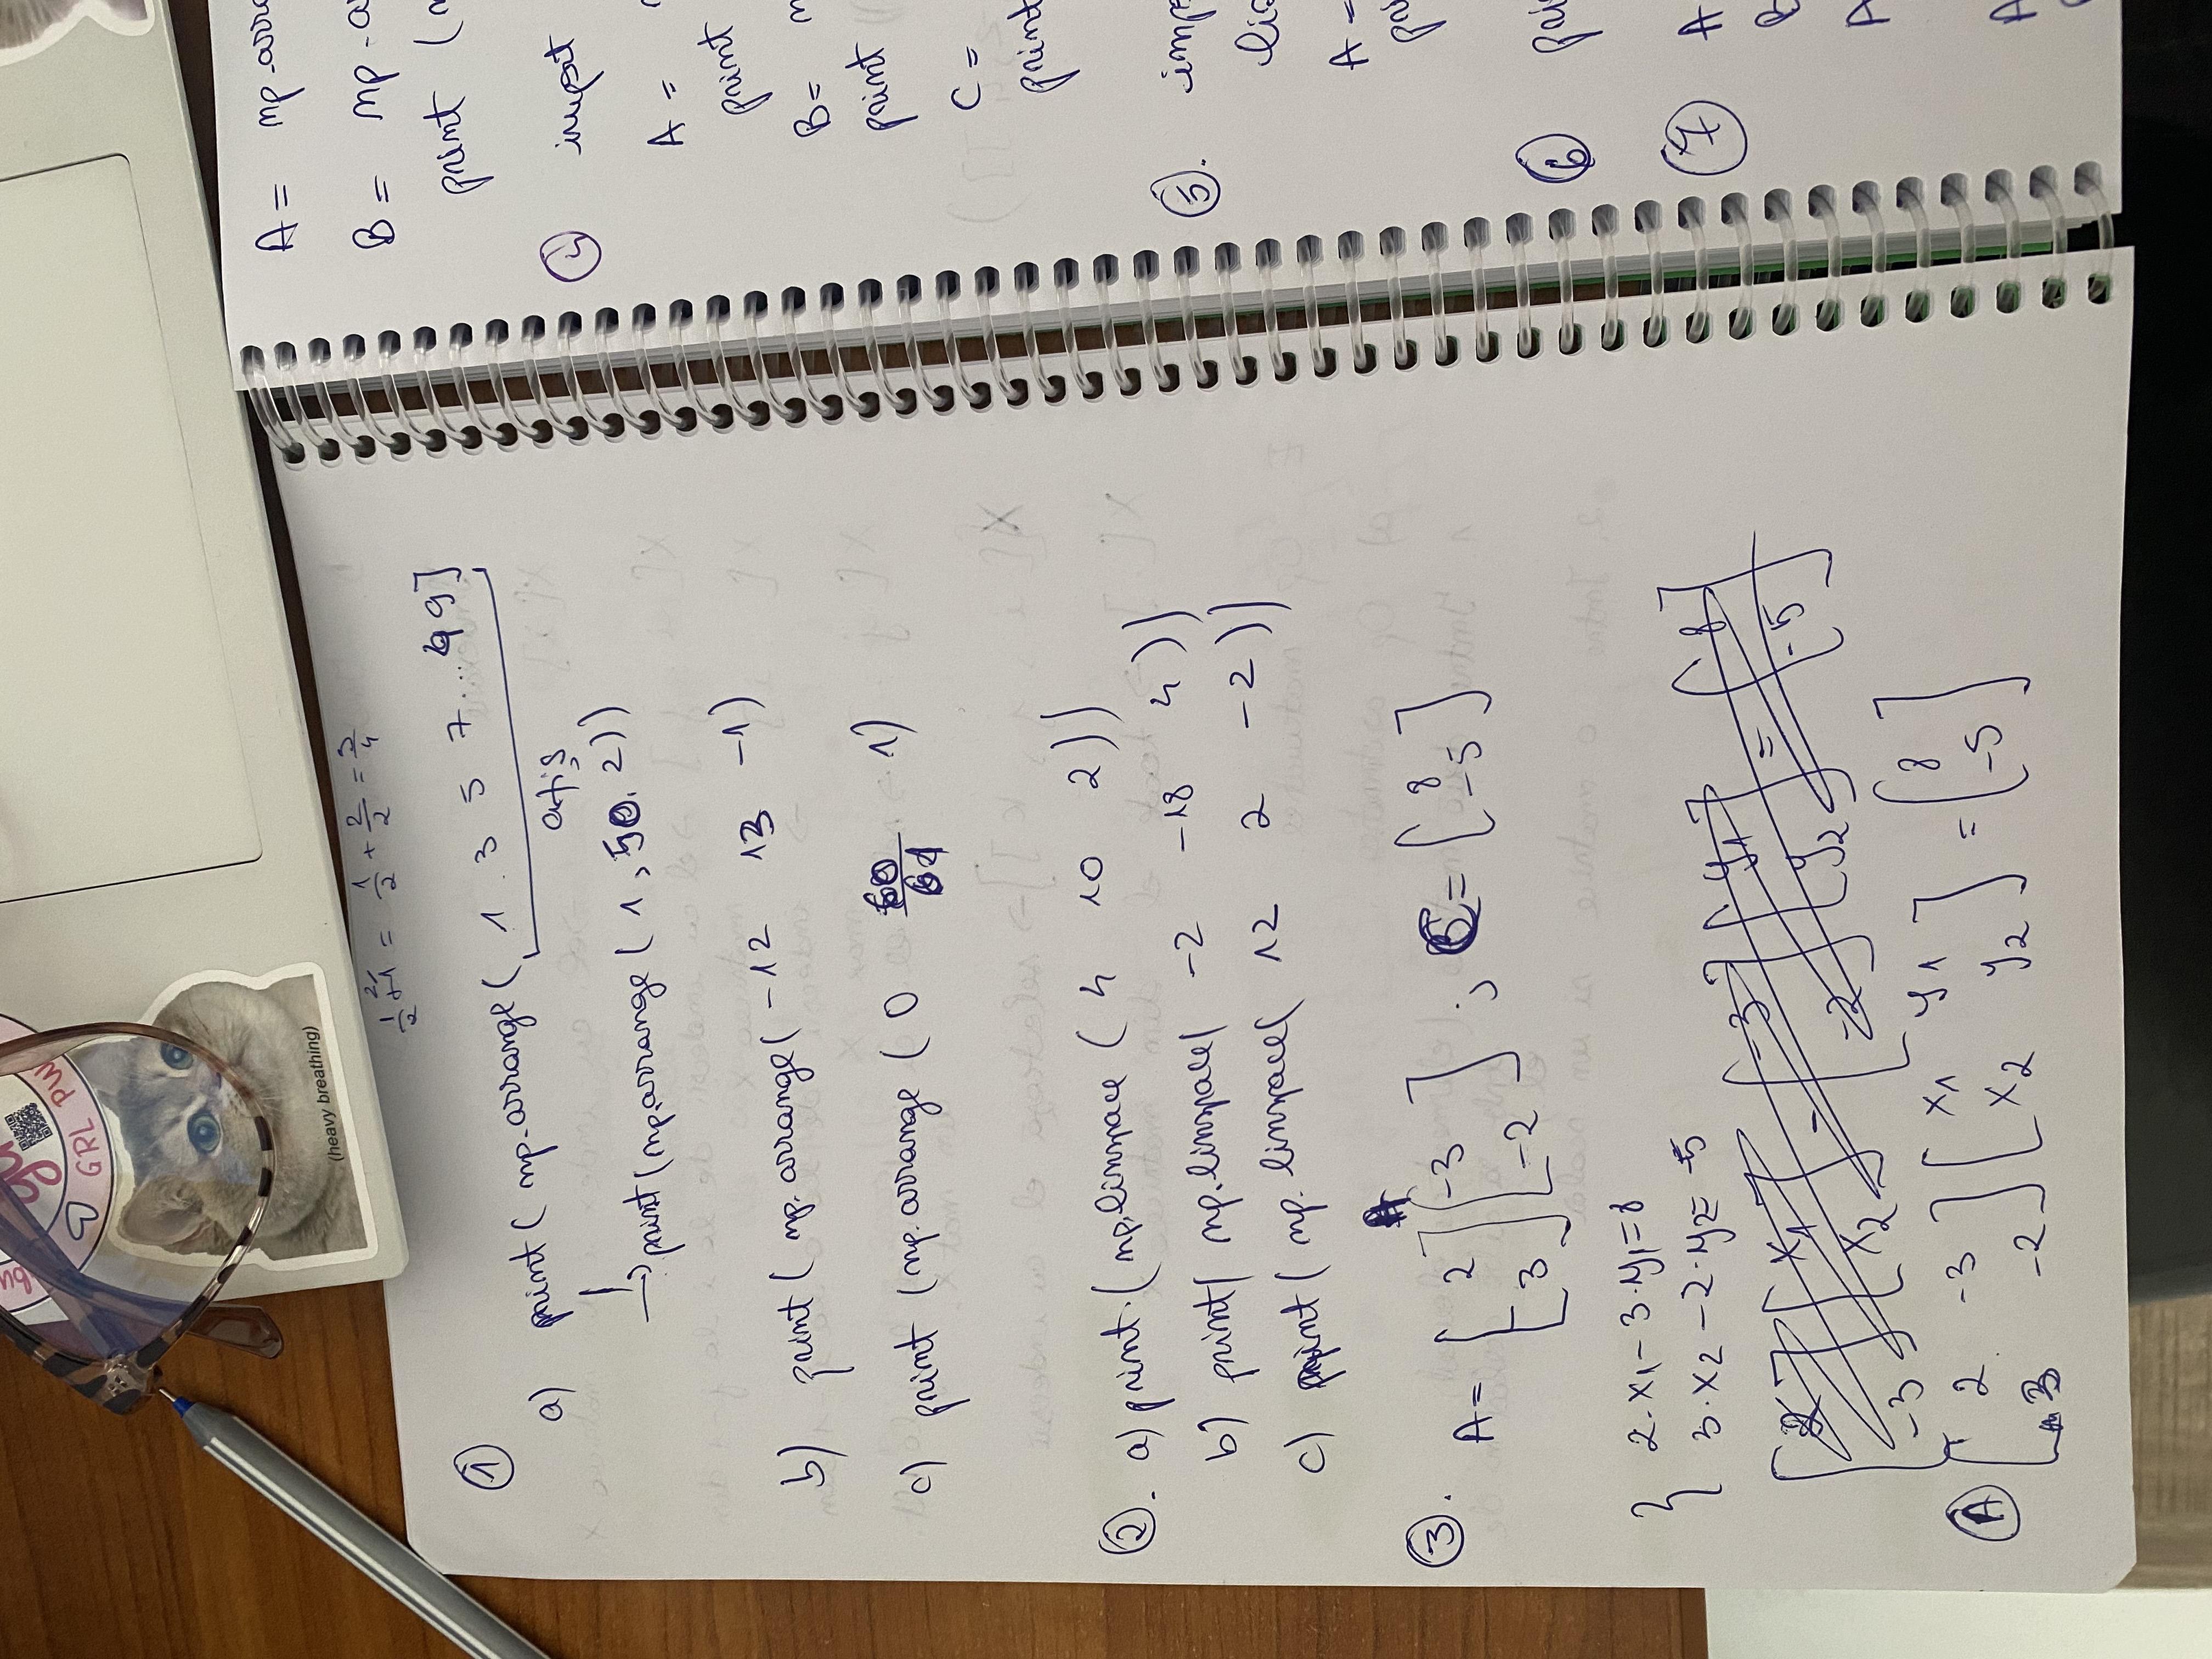 GRL PW
(heavy breathing)
1/2 + 1 = 1/2 + 2/2 = 3/4
①
a) print( np.arrange( 1 3 5 7 ... 49]
afiș
→ print(np.arrange( 1, 50, 2))
b) print( np.arrange( -12 13 -1)
c) print (np.arrange ( 0 60 1)
61
②. a) print.( np.linspace ( 4 10 2))
b) print( np.linspace( -2 -18 4))
c) print( np.linspace( 12 2 -2))
③. A = [ 2 ] [ -3 ] ; C = [ 8 ]
[ 3 ] [ -2 ] [ -5 ]
{ 2·x1 - 3·y1 = 8
3·x2 - 2·y2 = -5
[ 2 ] [ x1 ] - [ -3 ] [ y1 ] = [ 8 ]
[ -3 ] [ x2 ] [ -2 ] [ y2 ] [ -5 ]
Ⓐ [ 2 -3 ] [ x1 y1 ] = [ 8 ]
[ 3 -2 ] [ x2 y2 ] [ -5 ]
A = np.arra
B = np.a
print (
④ import
A =
print
B =
print
C =
print
⑤. imp
A =
pri
⑥ pri
⑦ A
B
A
A